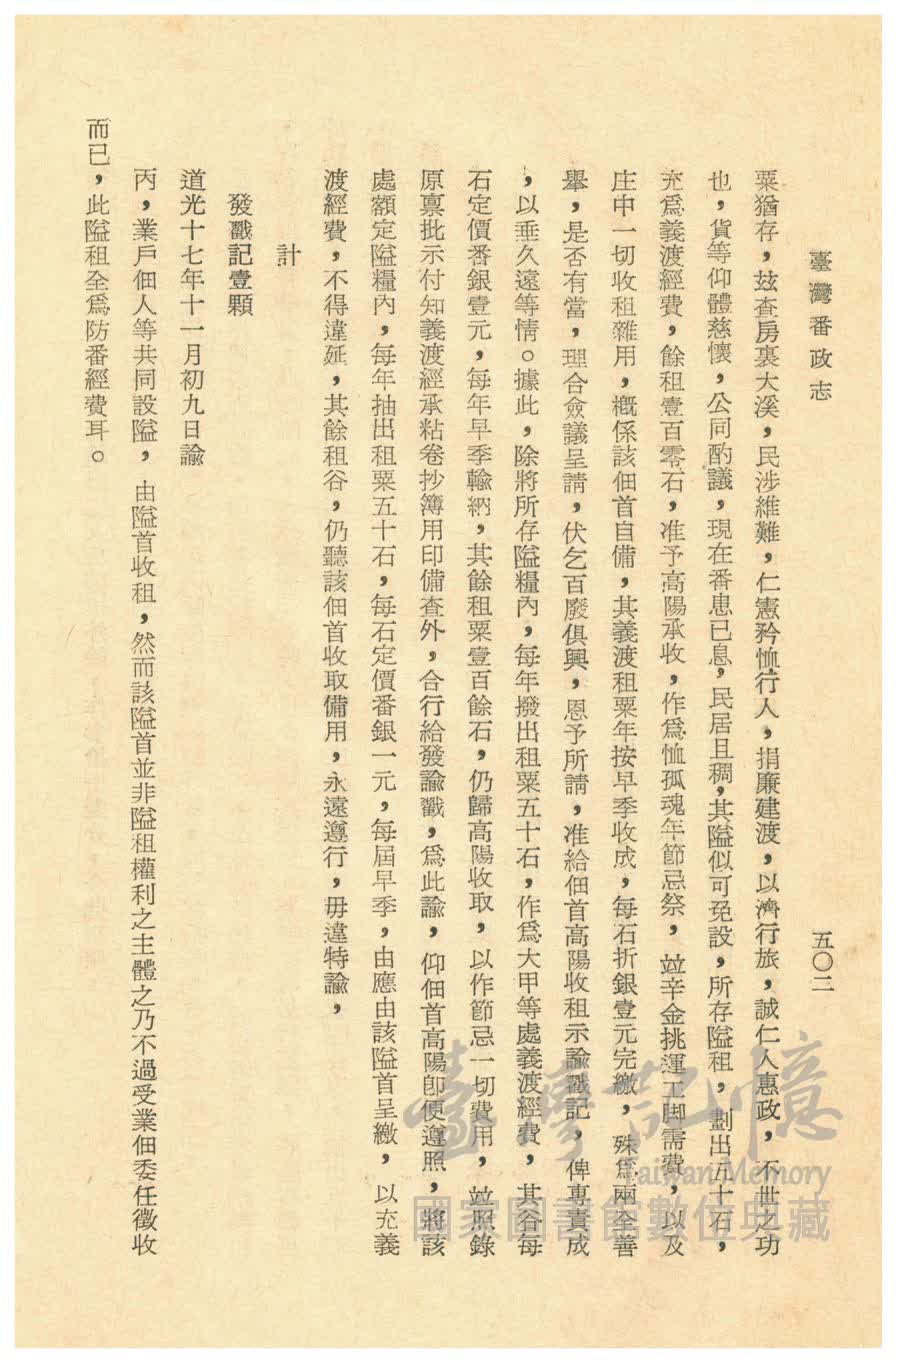 臺灣番政志
五〇二
粟猶存，玆查房裏大溪，民涉維難，仁憲矜恤行人，捐廉建渡，以濟行旅，誠仁人惠政，不世之功
也，貨等仰體慈懷，公同酌議，現在番患已息，民居且稠，其隘似可免設，所存隘租，劃出五十石，
充爲義渡經費，餘租壹百零石，准予高陽承收，作爲恤孤魂年節忌祭，竝辛金挑運工脚需費，以及
庄中一切收租雜用，槪係該佃首自備，其義渡租粟年按早季收成，每石折銀壹元完繳，殊爲兩全善
擧，是否有當，理合僉議呈請，伏乞百廢俱興，恩予所請，准給佃首高陽收租示諭戳記，俾專責成
，以垂久遠等情。據此，除將所存隘糧內，每年撥出租粟五十石，作爲大甲等處義渡經費，其谷每
石定價番銀壹元，每年早季輸納，其餘租粟壹百餘石，仍歸高陽收取，以作節忌一切費用，竝照錄
原禀批示付知義渡經承粘卷抄簿用印備查外，合行給發諭戳，爲此諭，仰佃首高陽卽便遵照，將該
處額定隘糧內，每年抽出租粟五十石，每石定價番銀一元，每屆早季，由應由該隘首呈繳，以充義
渡經費，不得違延，其餘租谷，仍聽該佃首收取備用，永遠遵行，毋違特諭，
計
發戳記壹顆
道光十七年十一月初九日諭
丙，業戶佃人等共同設隘，由隘首收租，然而該隘首並非隘租權利之主體之乃不過受業佃委任徵收
而已，此隘租全爲防番經費耳。
臺灣記憶
Taiwan Memory
國家圖書館數位典藏